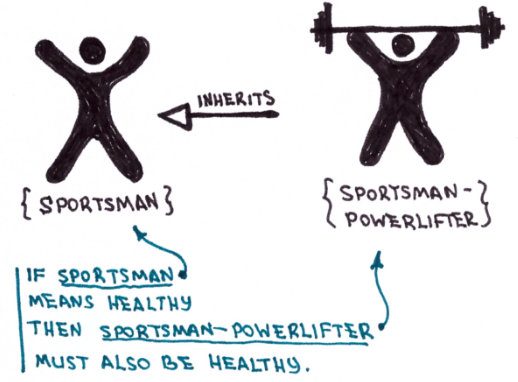 INHERITS
{SPORTSMAN}
{SPORTSMAN-
POWERLIFTER}
IF SPORTSMAN
MEANS HEALTHY
THEN SPORTSMAN-POWERLIFTER
MUST ALSO BE HEALTHY.